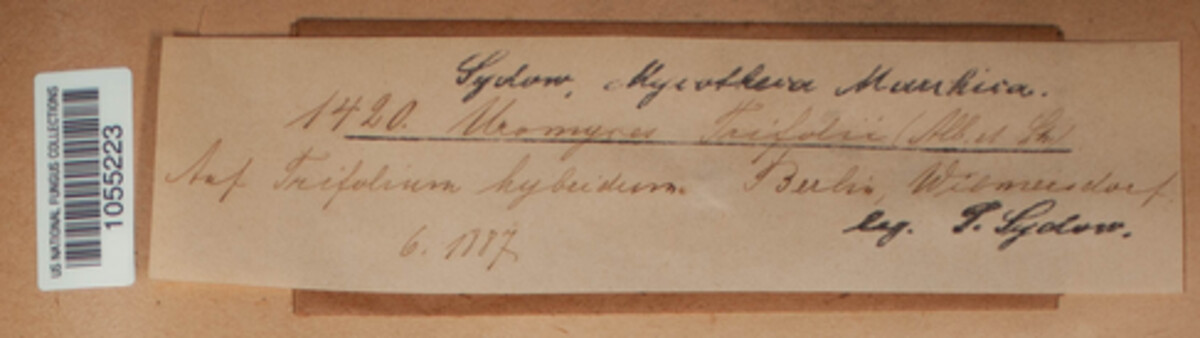 US NATIONAL FUNGUS COLLECTIONS
1055223
Sydow, Mycotheca Marchica.
1420. Uromyces Trifolii (Alb. et Sch)
Auf Trifolium hybridum. Berlin, Wilmersdorf.
leg. P. Sydow.
6. 1887